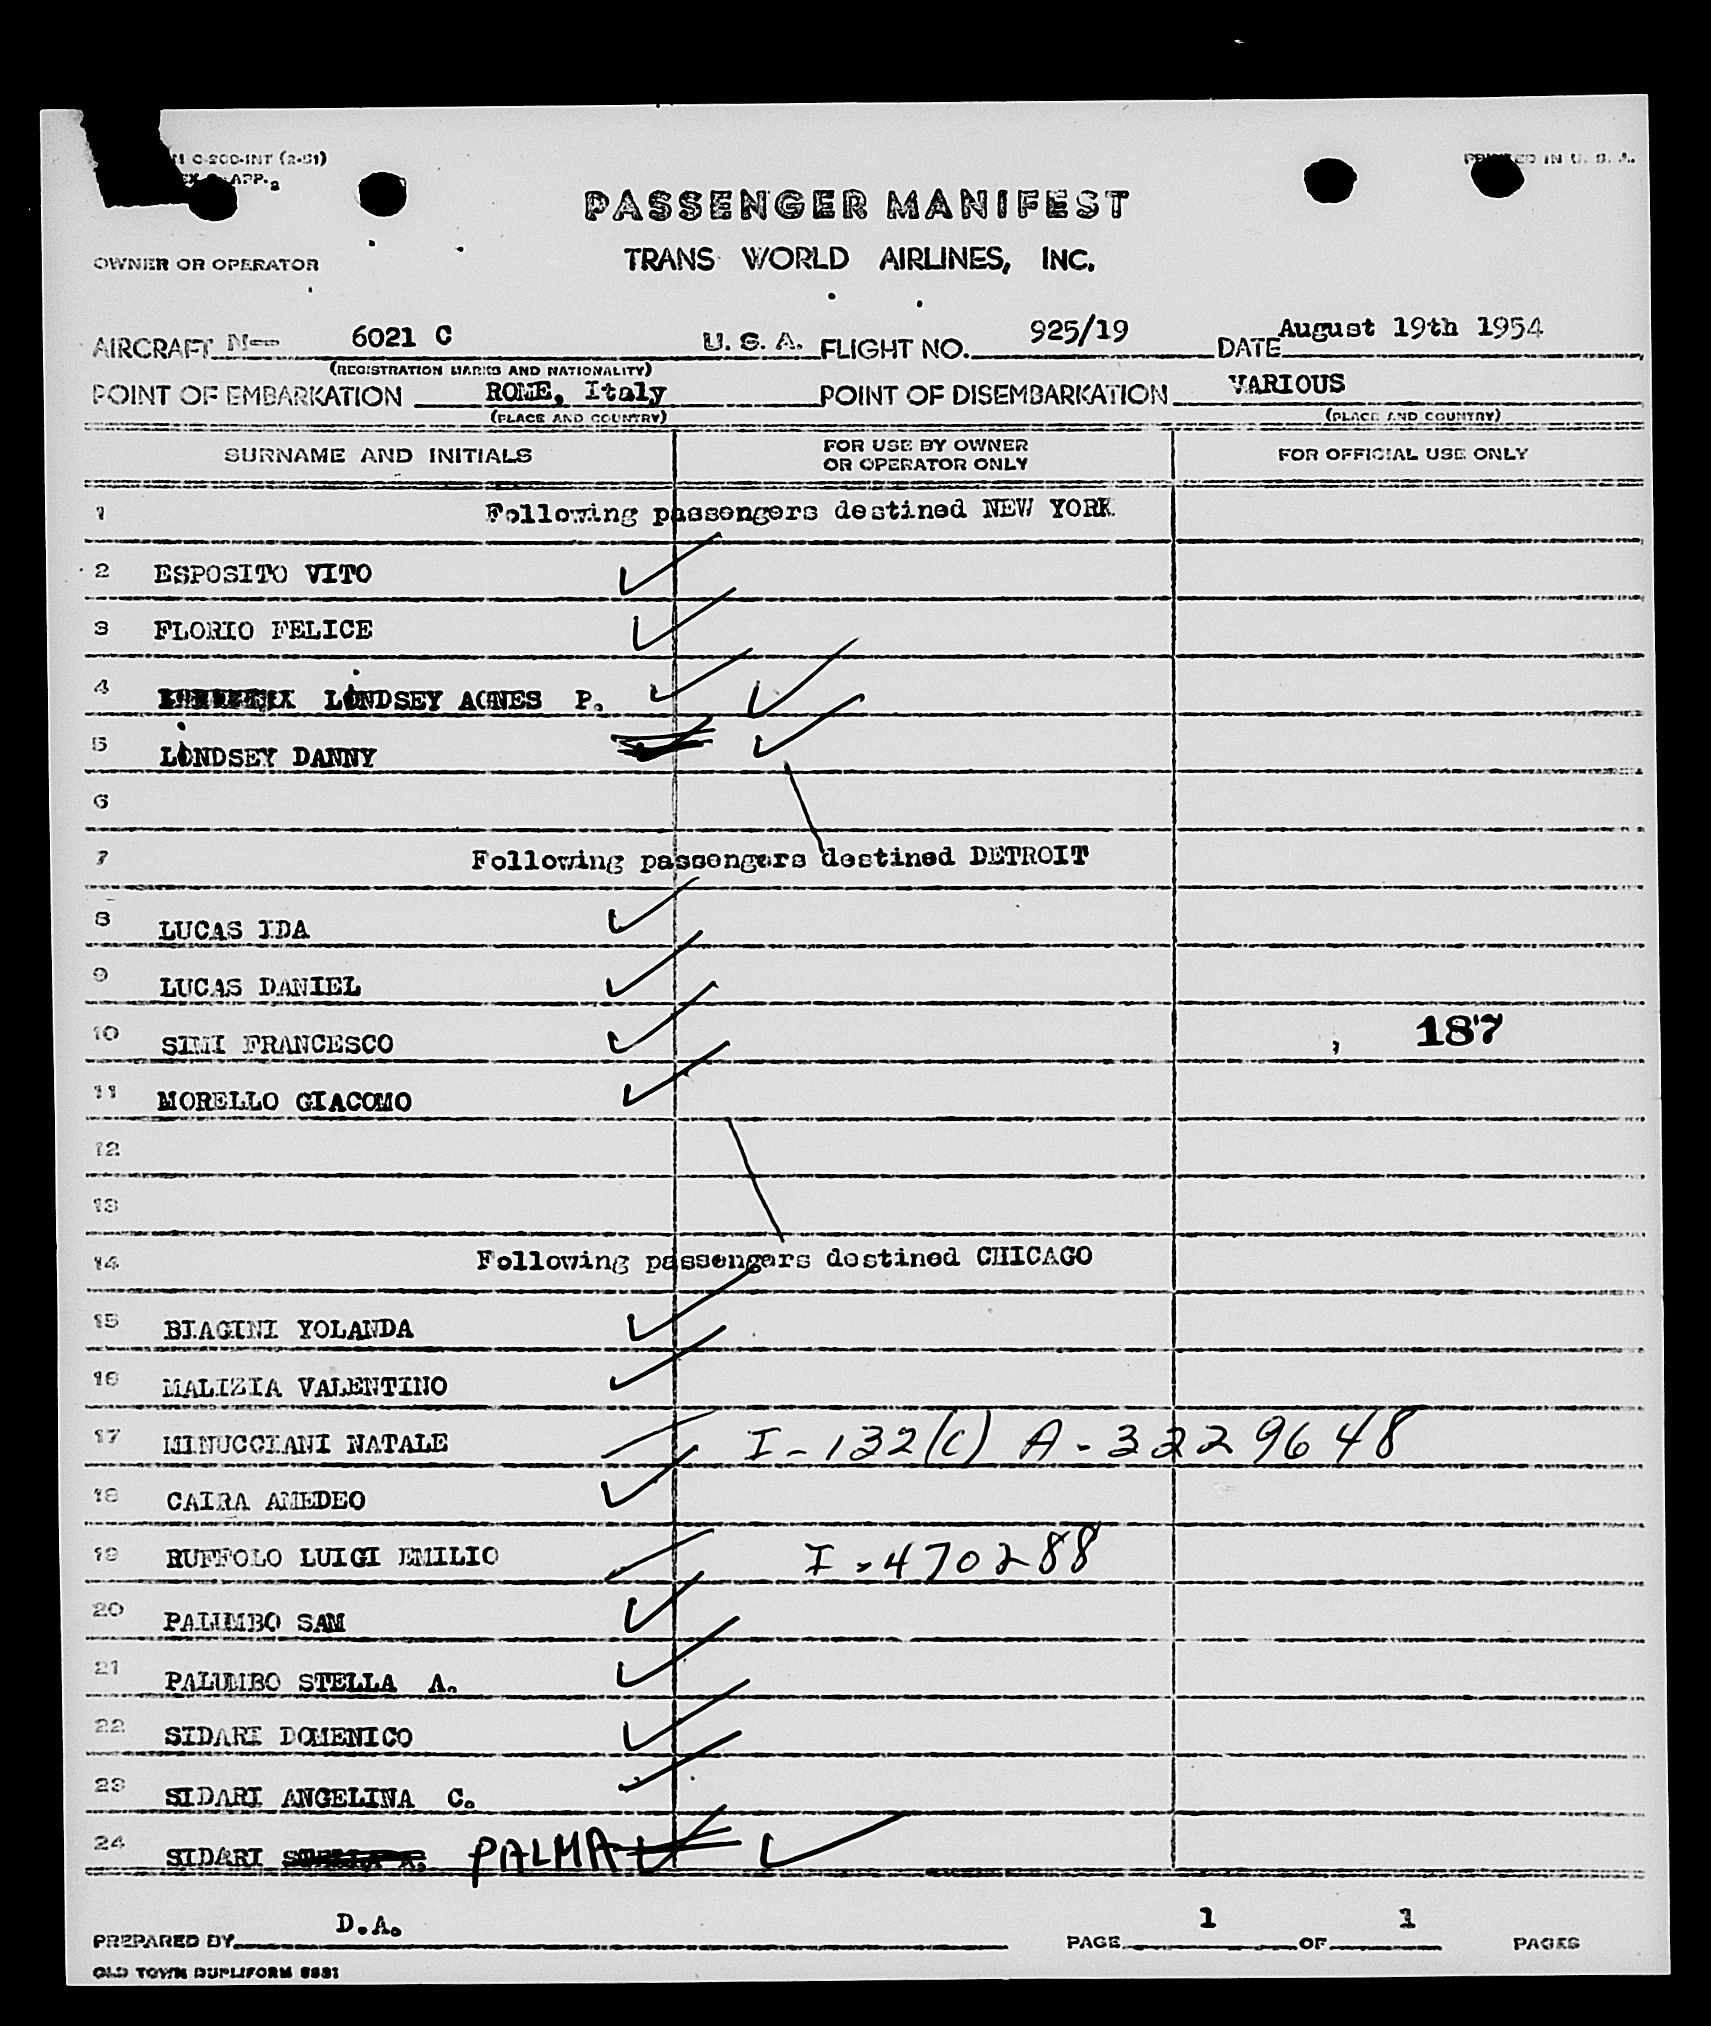 C-200-INT (2-51)
APP. 2
PRINTED IN U. S. A.
PASSENGER MANIFEST
OWNER OR OPERATOR TRANS WORLD AIRLINES, INC.
AIRCRAFT N-- 6021 C U. S. A. FLIGHT NO. 925/19 DATE August 19th 1954
(REGISTRATION MARKS AND NATIONALITY)
POINT OF EMBARKATION ROME, Italy POINT OF DISEMBARKATION VARIOUS
(PLACE AND COUNTRY) (PLACE AND COUNTRY)
SURNAME AND INITIALS FOR USE BY OWNER OR OPERATOR ONLY FOR OFFICIAL USE ONLY
1 Following passengers destined NEW YORK
2 ESPOSITO VITO
3 FLORIO FELICE
4 LINDSEY AGNES P.
5 LINDSEY DANNY
6
7 Following passengers destined DETROIT
8 LUCAS IDA
9 LUCAS DANIEL
10 SIMI FRANCESCO 187
11 MORELLO GIACOMO
12
13
14 Following passengers destined CHICAGO
15 BIAGINI YOLANDA
16 MALIZIA VALENTINO
17 MINUCCIANI NATALE I-132(C) A-3229648
18 CAIRA AMEDEO
19 RUFFOLO LUIGI EMILIO I-470288
20 PALUMBO SAM
21 PALUMBO STELLA A.
22 SIDARI DOMENICO
23 SIDARI ANGELINA C.
24 SIDARI PALMA
PREPARED BY D.A. PAGE 1 OF 1 PAGES
OLD TOWN DUPLIFORM 5531